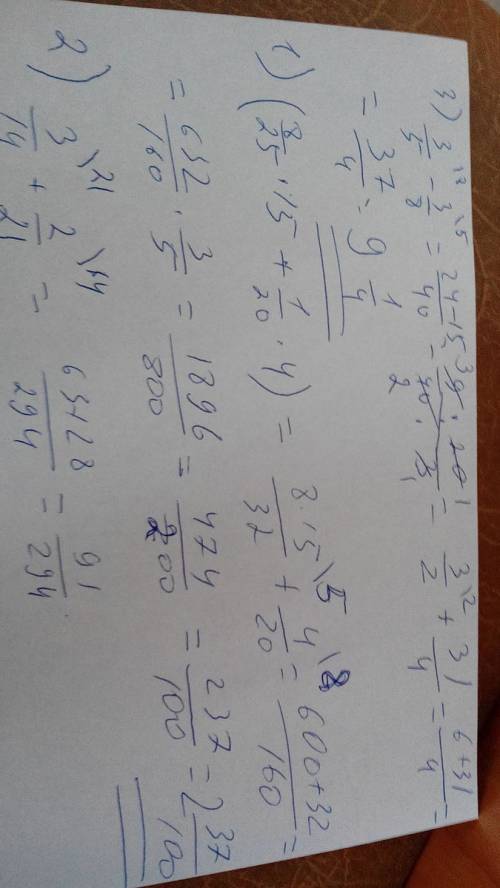 3) 3/5 \8 - 3/8 \5 = 24-15/40 = 9 · 20/40 · 3 = 3/2 \2 + 31/4 = 6+31/4 =
= 37/4 = 9 1/4
1) (8/25 · 15 + 1/20 · 4) = 8·15/32 \5 + 4/20 \8 = 600+32/160 =
= 632/160 · 3/5 = 1896/800 = 474/200 = 237/100 = 2 37/100
2) 3/14 \21 + 2/21 \14 = 63+28/294 = 91/294